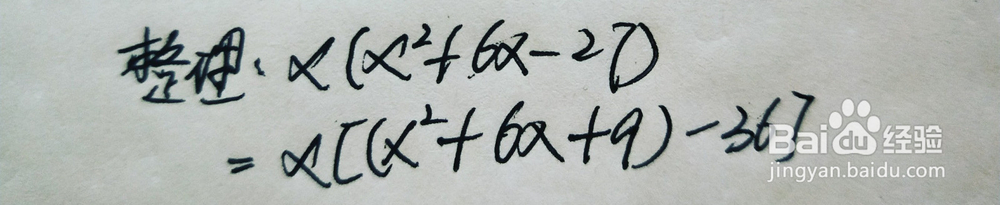 整理: x(x²+6x-27)
= x[(x²+6x+9)-36]
Baidu经验
jingyan.baidu.com